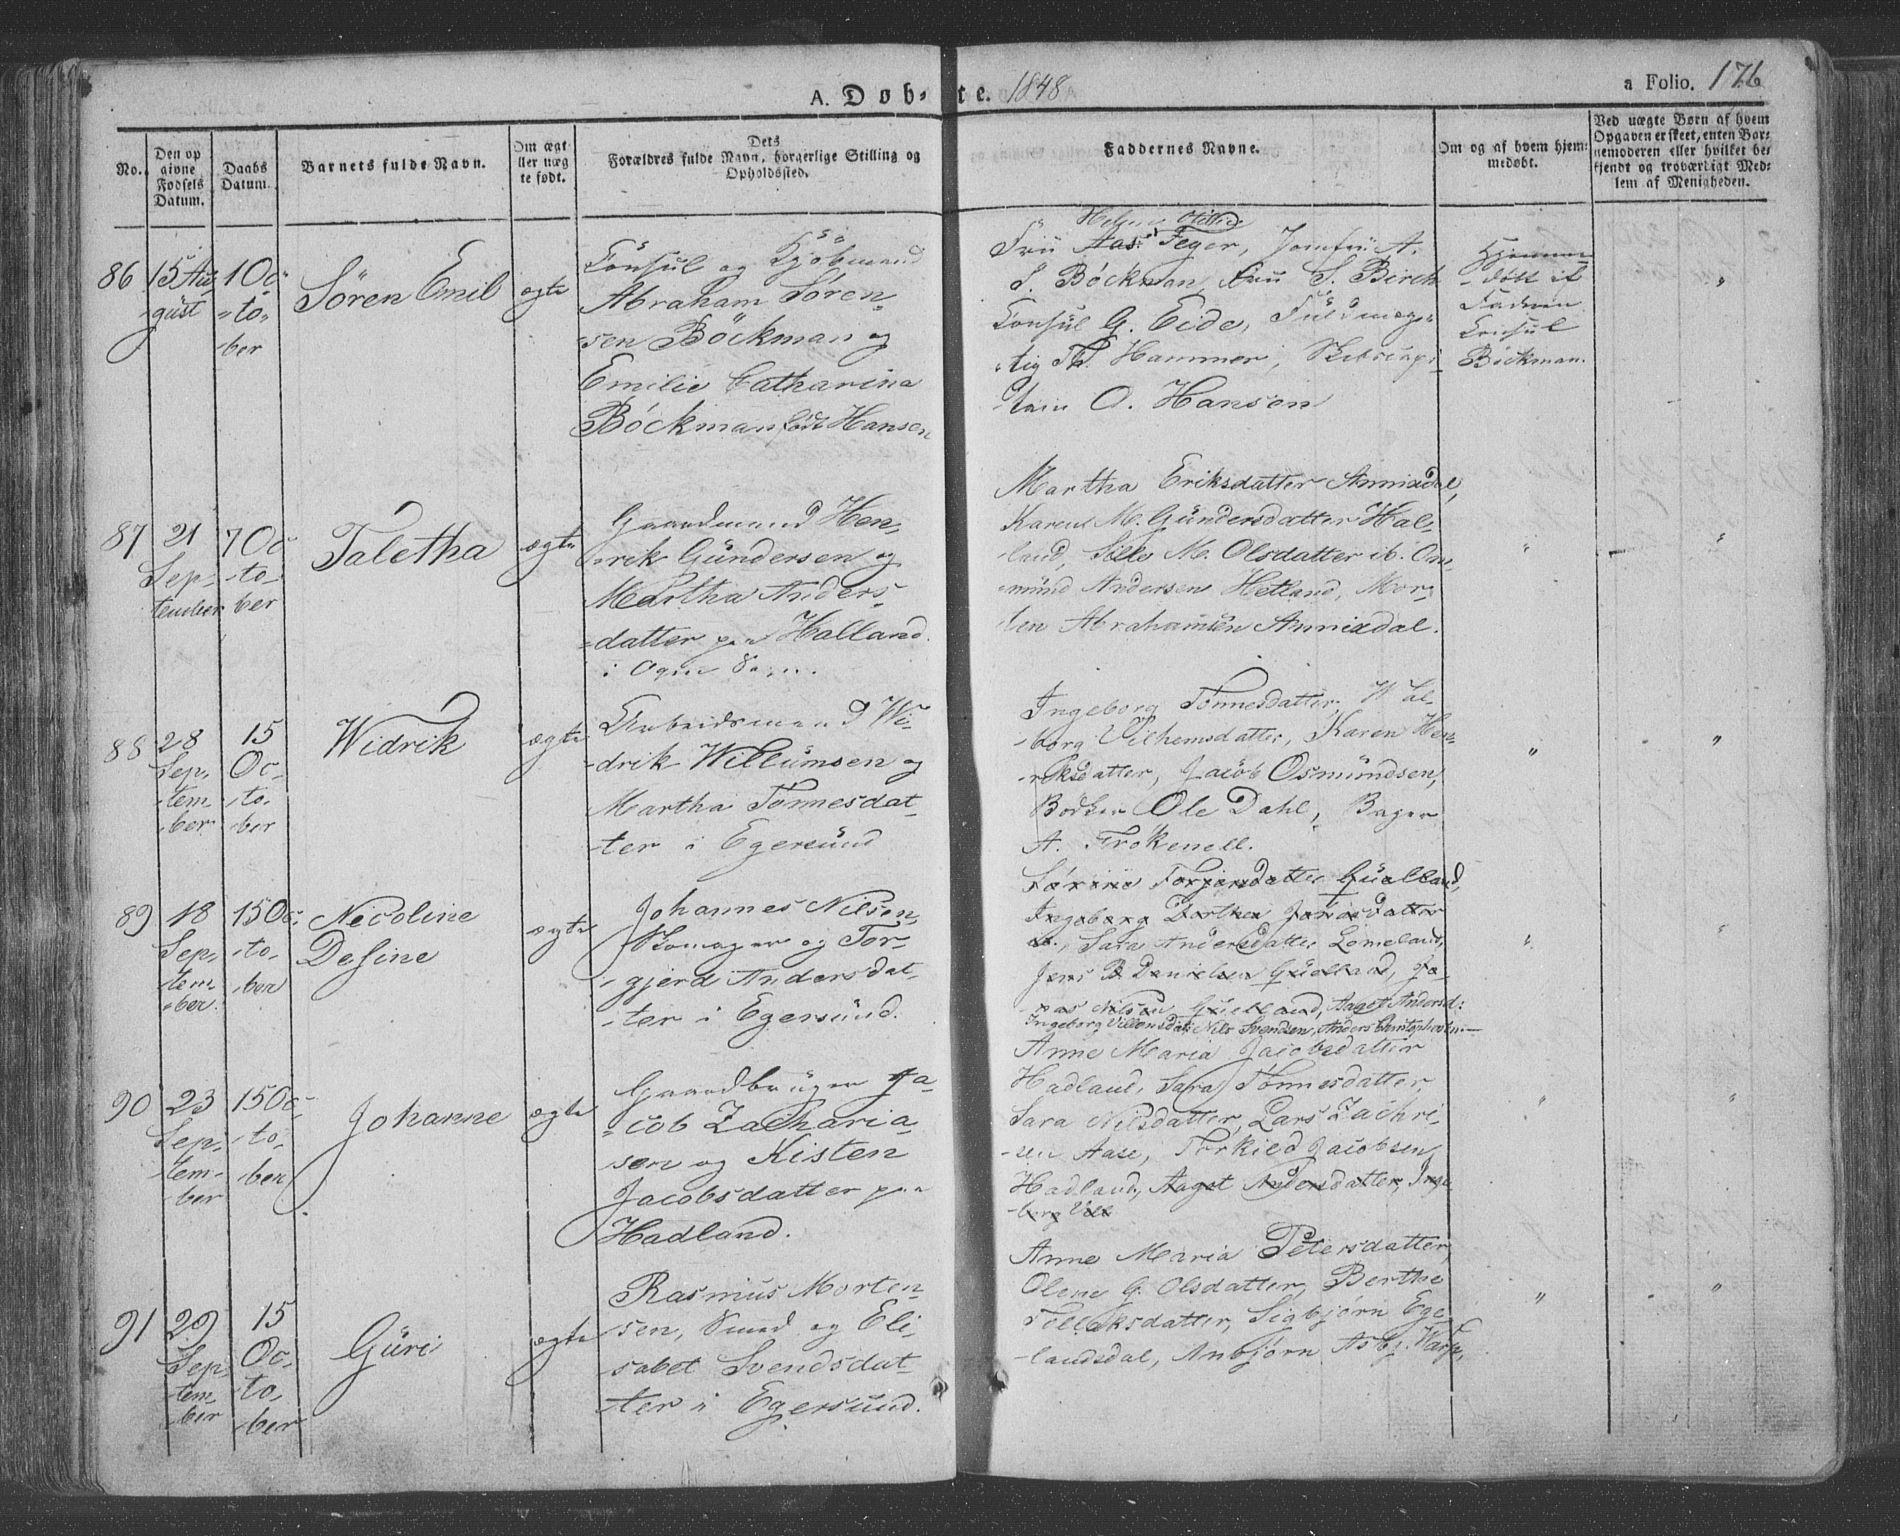 A. Døbte. 1848
a Folio. 176
No.
Den op
givne
Fødsels
Datum.
Daabs
Datum.
Barnets fulde Navn.
Om ægt
eller uæg
te født.
Dets
Forældres fulde Navn, borgerlige Stilling og
Opholdssted.
Faddernes Navne.
Om og af hvem hjem-
medøbt.
Ved uægte Børn af hvem
Opgaven er skeet, enten Bar-
nemoderen eller hvilket be-
kjendt og troværdigt Med-
lem af Menigheden.
86
15 Au
gust
1 Oc
to
ber
Sören Emil
ægte
Consul og Kjöbmand
Abraham Sören
sen Böckman og
Emilie Catharina
Böckman född Hansen
Fru Feyer, Jomfru A.
S. Böckman, Fru S. Birch
Consul G. Eide, Fuldmæg
tig Th. Hammer, Skibscap
tain O. Hansen
Hjemme
döbt af
Faderen
Consul
Böckman.
87
21
Sep
tember
7 Oc
to
ber
Taletha
ægte
Gaardmand Hen
rik Gundersen og
Martha Anders
datter paa Halland
i Ogne Sogn.
Martha Eriksdatter Anniadal,
Karen M. Gündersdatter Hal
land, Sille M. Olsdatter ib. Om
münd Andersen Hetland, Mor
ten Abrahamsen Anniadal.
88
28
Sep
tem
ber
15
Oc
to
ber
Widrik
ægte
Arbeidsmand Wi
drik Willumsen og
Martha Tönnesdat
ter i Egersund
Ingeborg Tönnesdatter, Wal
borg Vilhemsdatter, Karen Hen
riksdatter, Jacob Osmündsen,
Bödker Ole Dahl, Bager
A. Frökenell.
89
18
Sep
tem
ber
15 Oc
to
ber
Necoline
Desine
ægte
Johannes Nilsen
Skomager og Tor
gjerd Andersdat
ter i Egersund.
Ingeborg Dorthea Jonasdatter
ib., Sara Andersdatter Lomeland,
Jens B Danielsen Guelland, Jo
nas Nilsen Guelland, Aaget Andersd:
Ingeborg Villomsdat: Nils Svendsen, Anders Christophersen
90
23
Sep
tem
ber
15 Oc
to
ber
Johanne
ægte
Gaardbruger Ja
cob Zacharia
sen og Kisten
Jacobsdatter paa
Hadland.
Anne Maria Jacobsdatter
Hadland, Sara Tönnesdatter,
Sara Nilsdatter, Lars Zachri
sen Aase, Torkield Jacobsen
Hadland, Aaget Andersdatter, Inge
borg Vill
91
29
Sep
tem
ber
15
Oc
to
ber
Güri
ægte
Rasmus Morten
sen, Smed og Eli
sabet Svendsdat
ter i Egersund.
Anne Maria Petersdatter,
Olene G. Olsdatter, Berthe
Tollaksdatter, Sigbjørn Ege
landsdal, Anbjørn Asbj.